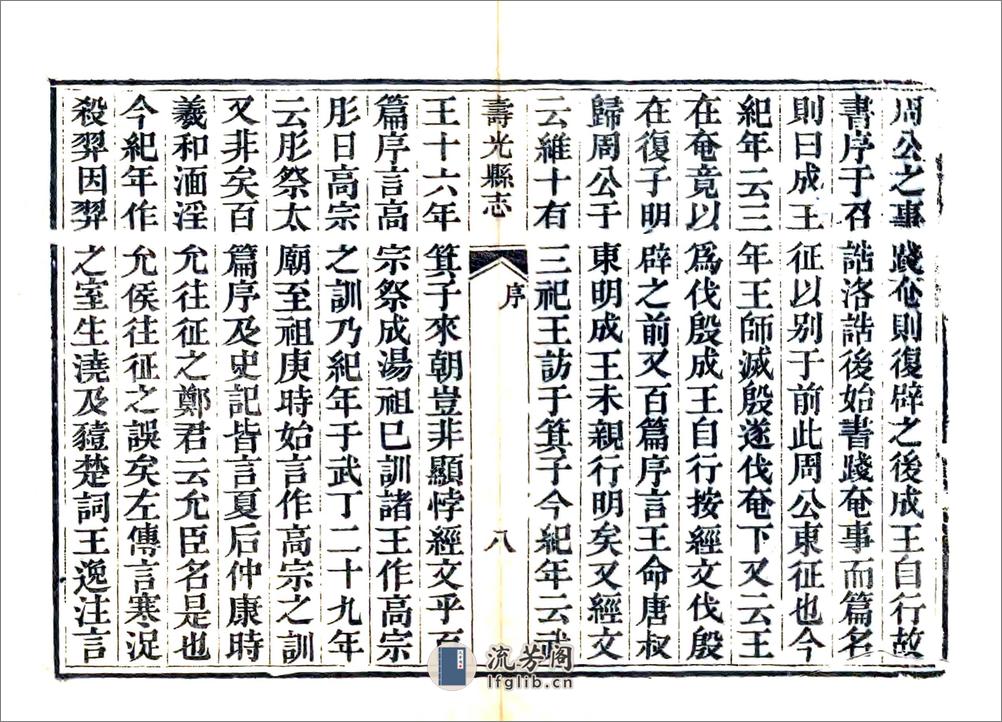 周公之事踐奄則復辟之後成王自行故
書序于召誥洛誥後始書踐奄事而篇名
則曰成王征以别于前此周公東征也今
紀年云三年王師滅殷遂伐奄下又云王
在奄竟以爲伐殷成王自行按經文伐殷
在復子明辟之前又百篇序言王命唐叔
歸周公于東明成王未親行明矣又經文
云維十有三祀王訪于箕子今紀年云武
壽光縣志
序
八
王十六年箕子來朝豈非顯悖經文乎百
篇序言高宗祭成湯祖巳訓諸王作高宗
肜日高宗之訓乃紀年于武丁二十九年
云肜祭太廟至祖庚時始言作高宗之訓
又非矣百篇序及史記皆言夏后仲康時
羲和湎淫允往征之鄭君云允臣名是也
今紀年作允侯往征之誤矣左傳言寒浞
殺羿因羿之室生澆及豷楚詞王逸注言
流芳阁
lfglib.cn